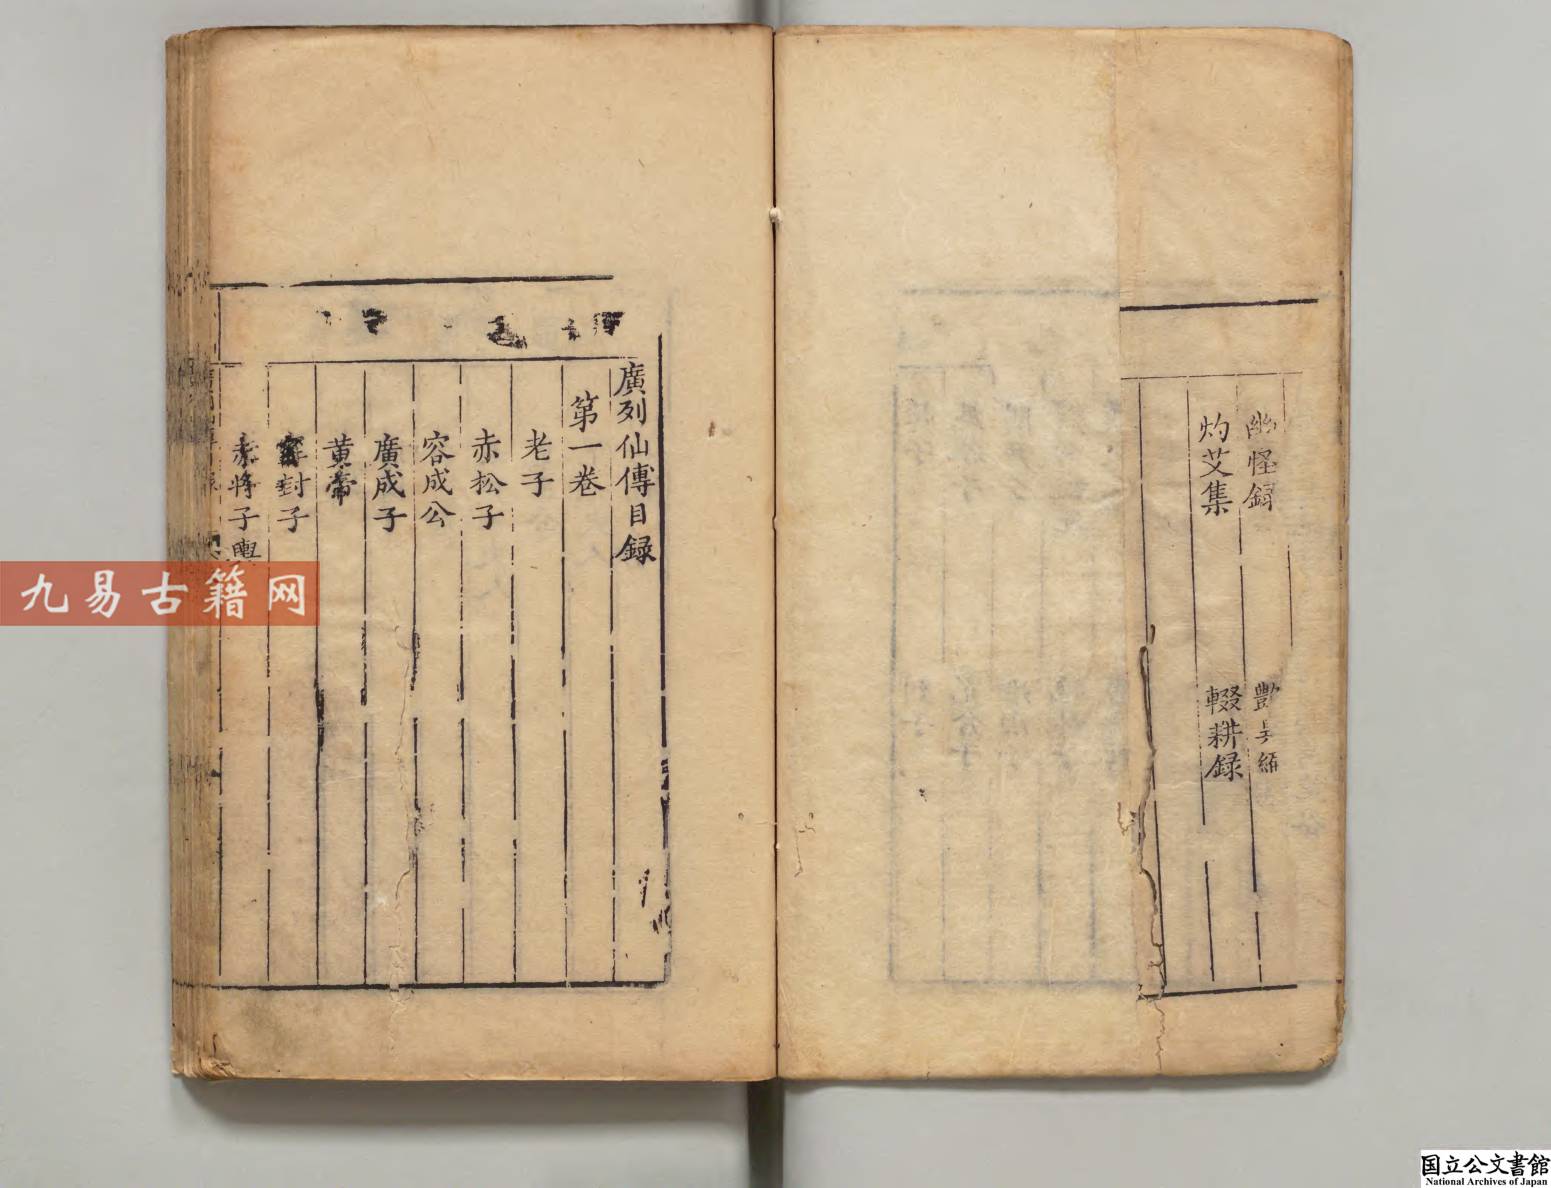 幽怪録
豔異編
灼艾集
輟耕録
廣列仙傳目録
第一卷
老子
赤松子
容成公
廣成子
黄帝
封子
赤將子輿
九易古籍网
国立公文書館
National Archives of Japan